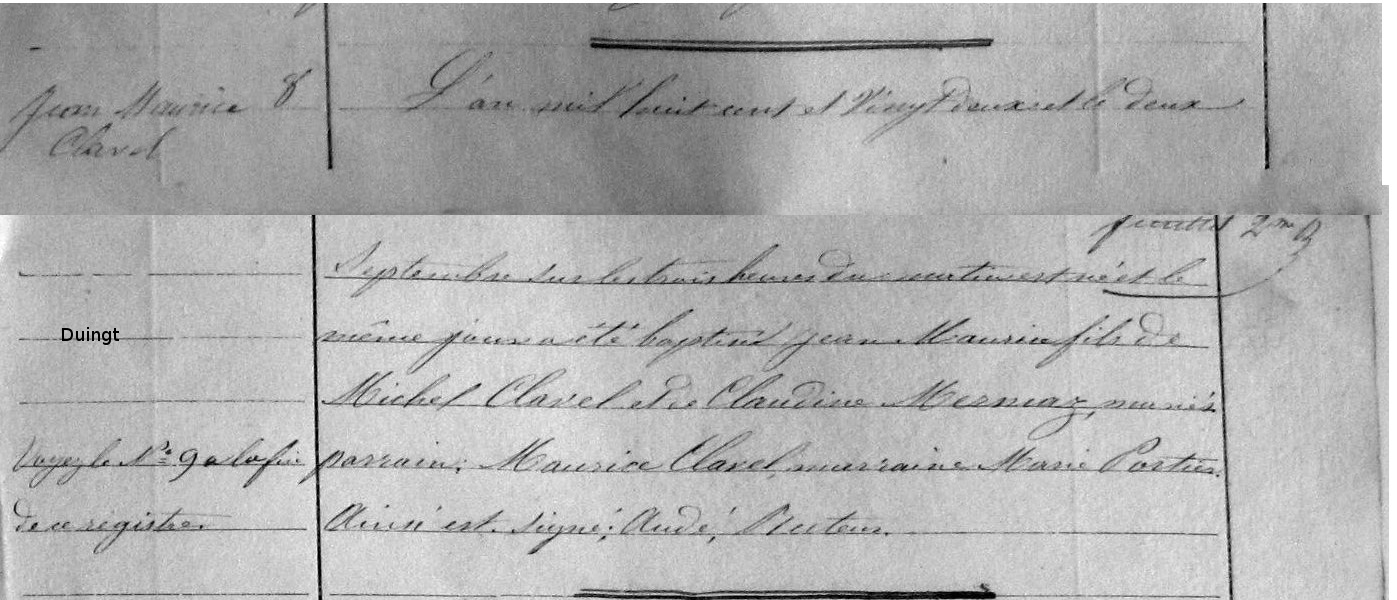 Jean Maurice 8
Clavel
L'an mil huit cent et Vingt deux et le deux
feuillet 2me
Septembre sur les trois heures du matin est né et le
même jour a été baptisé Jean Maurice fils de
Duingt
Michel Clavel et de Claudine Mermaz, mariés
parrain: Maurice Clavel, marraine Marie Portier.
Voyez le No 9 a la fin
de ce régistre.
Ainsi est signé: Audé, Recteur.